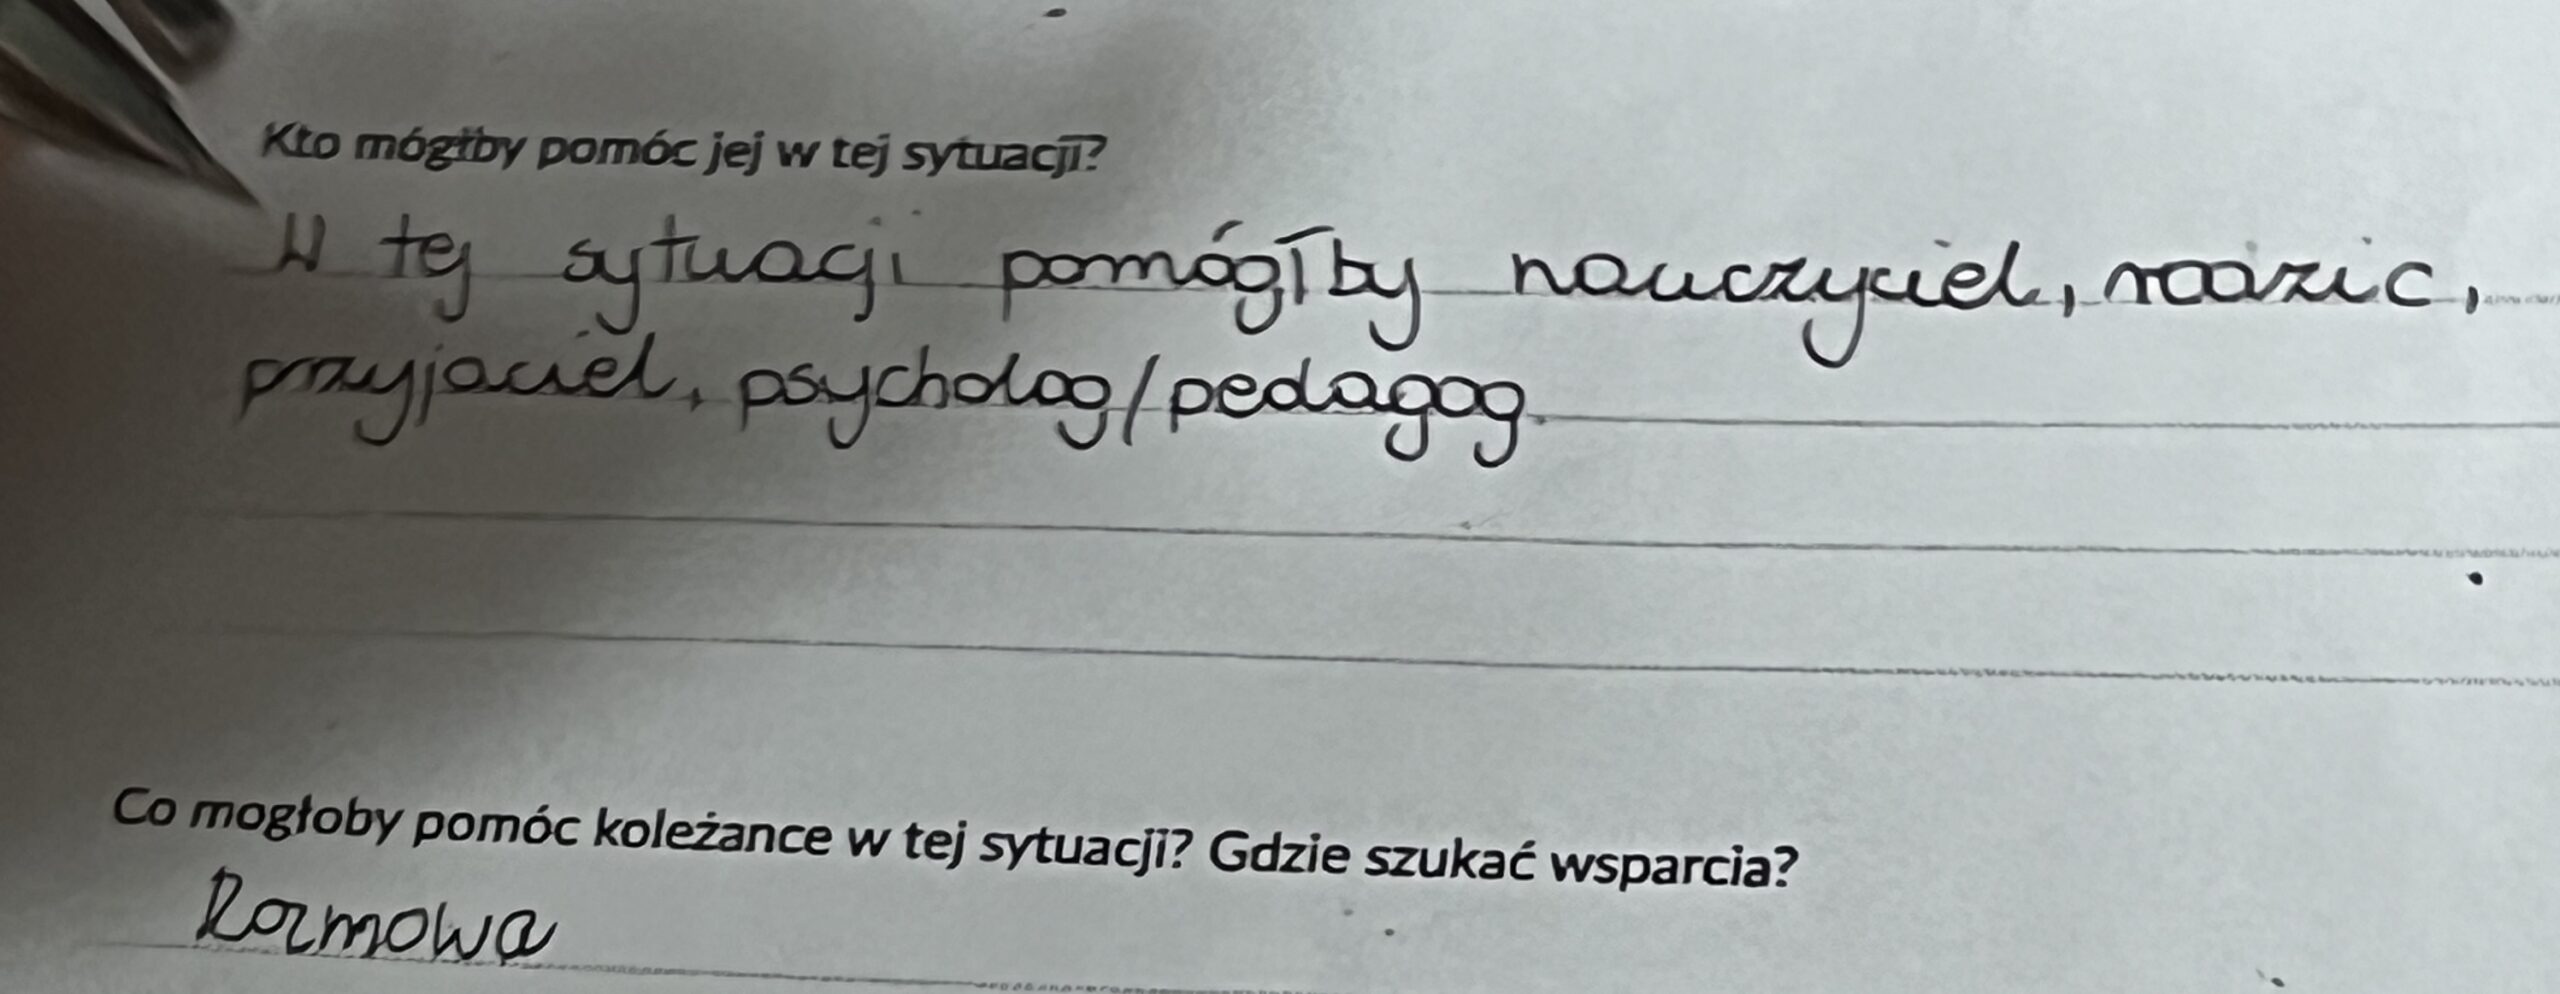 Kto mógłby pomóc jej w tej sytuacji?
W tej sytuacji pomógłby nauczyciel, rodzic,
przyjaciel, psycholog/pedagog.
Co mogłoby pomóc koleżance w tej sytuacji? Gdzie szukać wsparcia?
Rozmowa